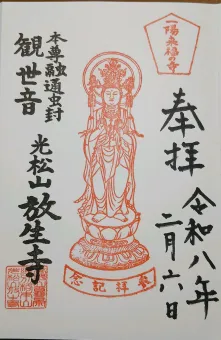 一陽来福の寺
奉拝
令和八年
二月六日
参拝記念
本尊融通虫封
観世音
光松山放生寺